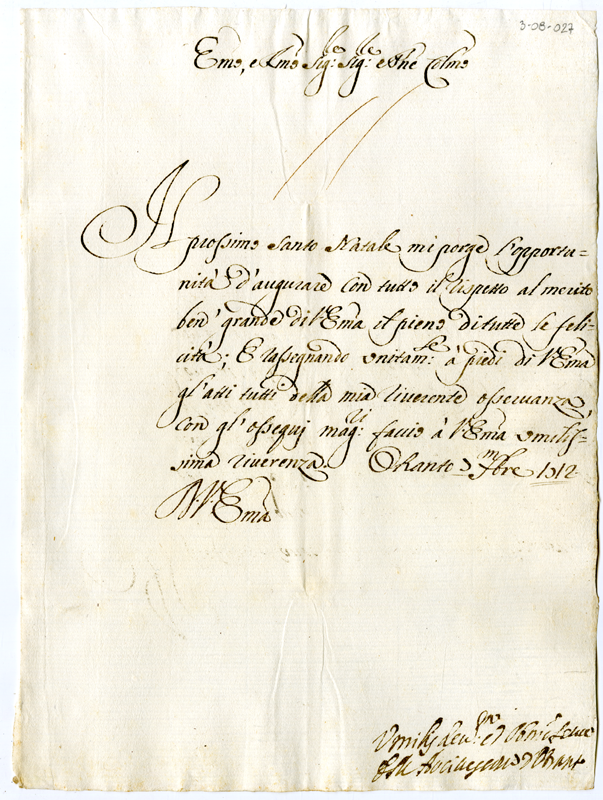 3-08-027
Emo, e Rmo Sig:re Sig:re e Pne Colmo
Il prossimo Santo Natale mi porge l'opportu=
nità d'augurare con tutto il rispetto al merito
ben' grande di V. Ema il pieno di tutte le feli=
cità; E rassegnando unitam:te à piedi di V. Ema
gl'atti tutti della mia riverente osservanza,
con gl'ossequij mag:ri faccio à V. Ema umilis=
sima riverenza. Otranto Xmbre 1712
D. V. Ema